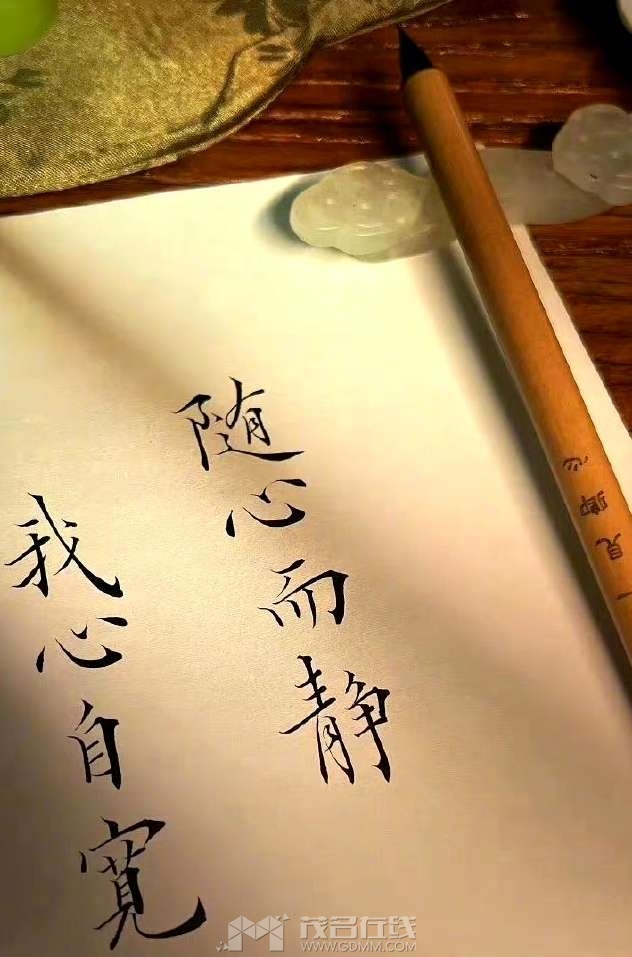 随心而静
我心自寬
一見卿心
茂名在线
WWW.GDMM.COM